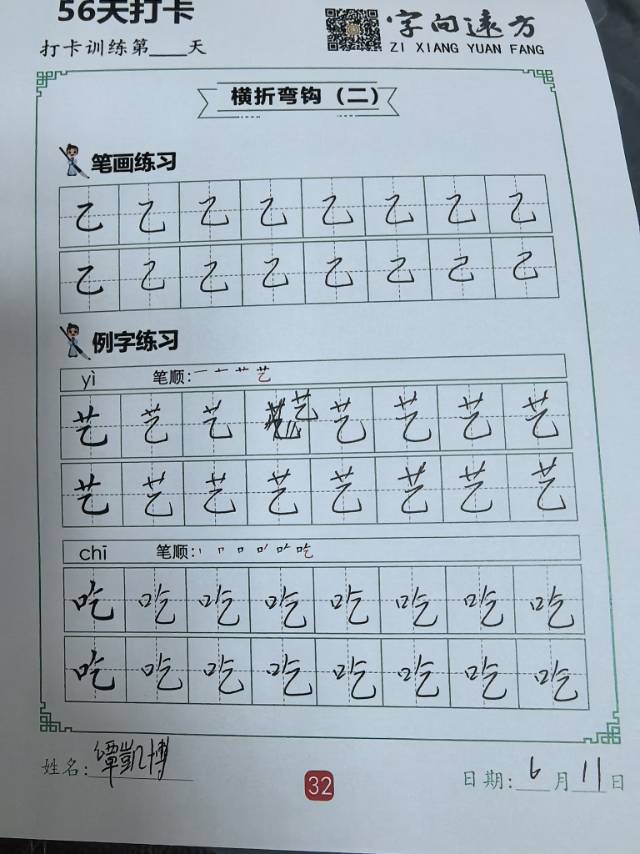 56天打卡
打卡训练第___天
字向远方
ZI XIANG YUAN FANG
横折弯钩（二）
笔画练习
乙 乙 乙 乙 乙 乙 乙 乙
乙 乙 乙 乙 乙 乙 乙 乙
例字练习
yì 笔顺: 艺
艺 艺 艺 艺 艺 艺 艺 艺
艺 艺 艺 艺 艺 艺 艺 艺
chī 笔顺: 吃
吃 吃 吃 吃 吃 吃 吃 吃
吃 吃 吃 吃 吃 吃 吃 吃
姓名: 凱博
32
日期: 6月11日